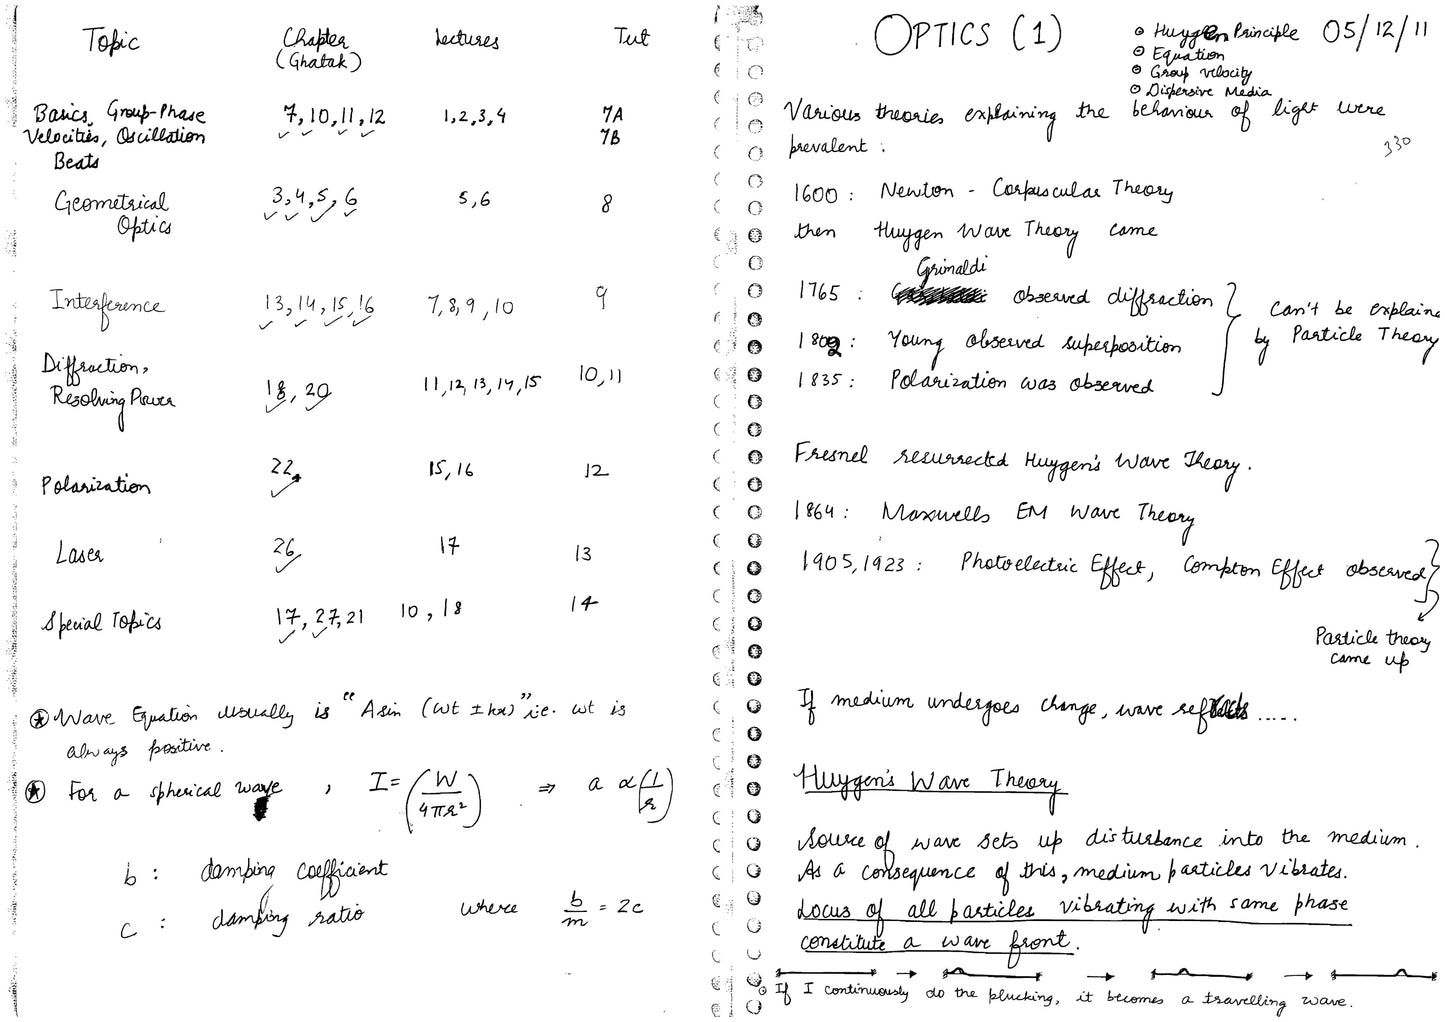 Topic Chapter (Ghatak) Lectures Tut
Basics, Group-Phase 7, 10, 11, 12 1, 2, 3, 4 7A
Velocities, Oscillation 7B
Beats
Geometrical 3, 4, 5, 6 5, 6 8
Optics
Interference 13, 14, 15, 16 7, 8, 9, 10 9
Diffraction,
Resolving Power 18, 20 11, 12, 13, 14, 15 10, 11
Polarization 22 15, 16 12
Laser 26 17 13
Special Topics 17, 27, 21 10, 18 14
Wave Equation usually is "A sin (ωt ± kx)" i.e. ωt is
always positive.
For a spherical wave, I = (W / 4πr²) ⇒ a ∝ (1 / r)
b : damping coefficient
c : damping ratio where b/m = 2c
OPTICS (1)
Huygen Principle 05/12/11
Equation
Group velocity
Dispersive Media
Various theories explaining the behaviour of light were
prevalent :
330
1600 : Newton - Corpuscular Theory
then Huygen Wave Theory came
1765 : Grimaldi observed diffraction
1802 : Young observed superposition
1835 : Polarization was observed
Can't be explaine
by Particle Theory
Fresnel resurrected Huygen's Wave Theory.
1864 : Maxwells EM Wave Theory
1905, 1923 : Photoelectric Effect, Compton Effect observed
Particle theory
came up
If medium undergoes change, wave .....
Huygen's Wave Theory
Source of wave sets up disturbance into the medium.
As a consequence of this, medium particles vibrates.
Locus of all particles vibrating with same phase
constitute a wave front.
If I continuously do the plucking, it becomes a travelling wave.